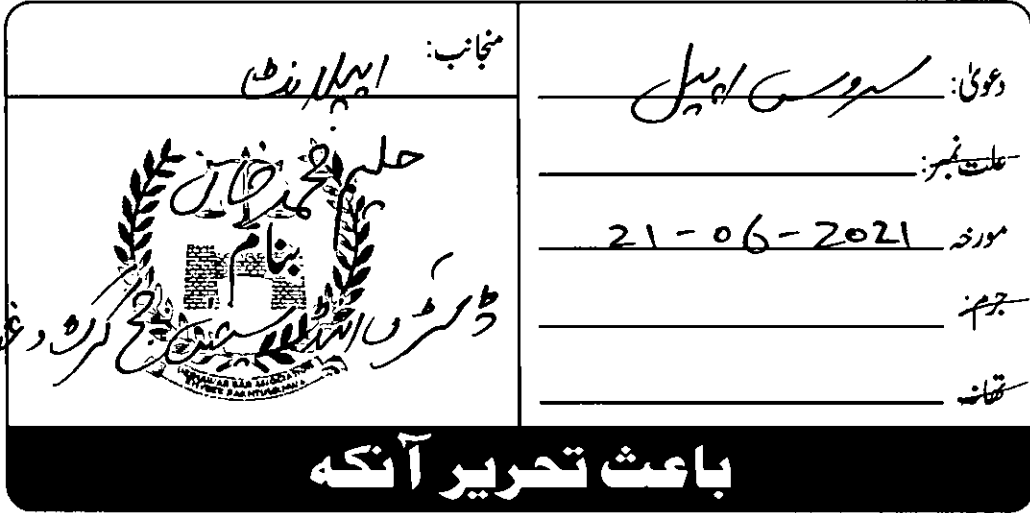 دعویٰ: سروس اپیل
علت نمبر:
مورخہ 21-06-2021
جرم:
تھانہ
منجانب: اپیلانٹ
حلیم محمد خان
بنام
ڈسٹرکٹ اینڈ سیشن جج کرک وغ
PESHAWAR BAR ASSOCIATION
KHYBER PAKHTUNKHWA
باعث تحریر آنکه